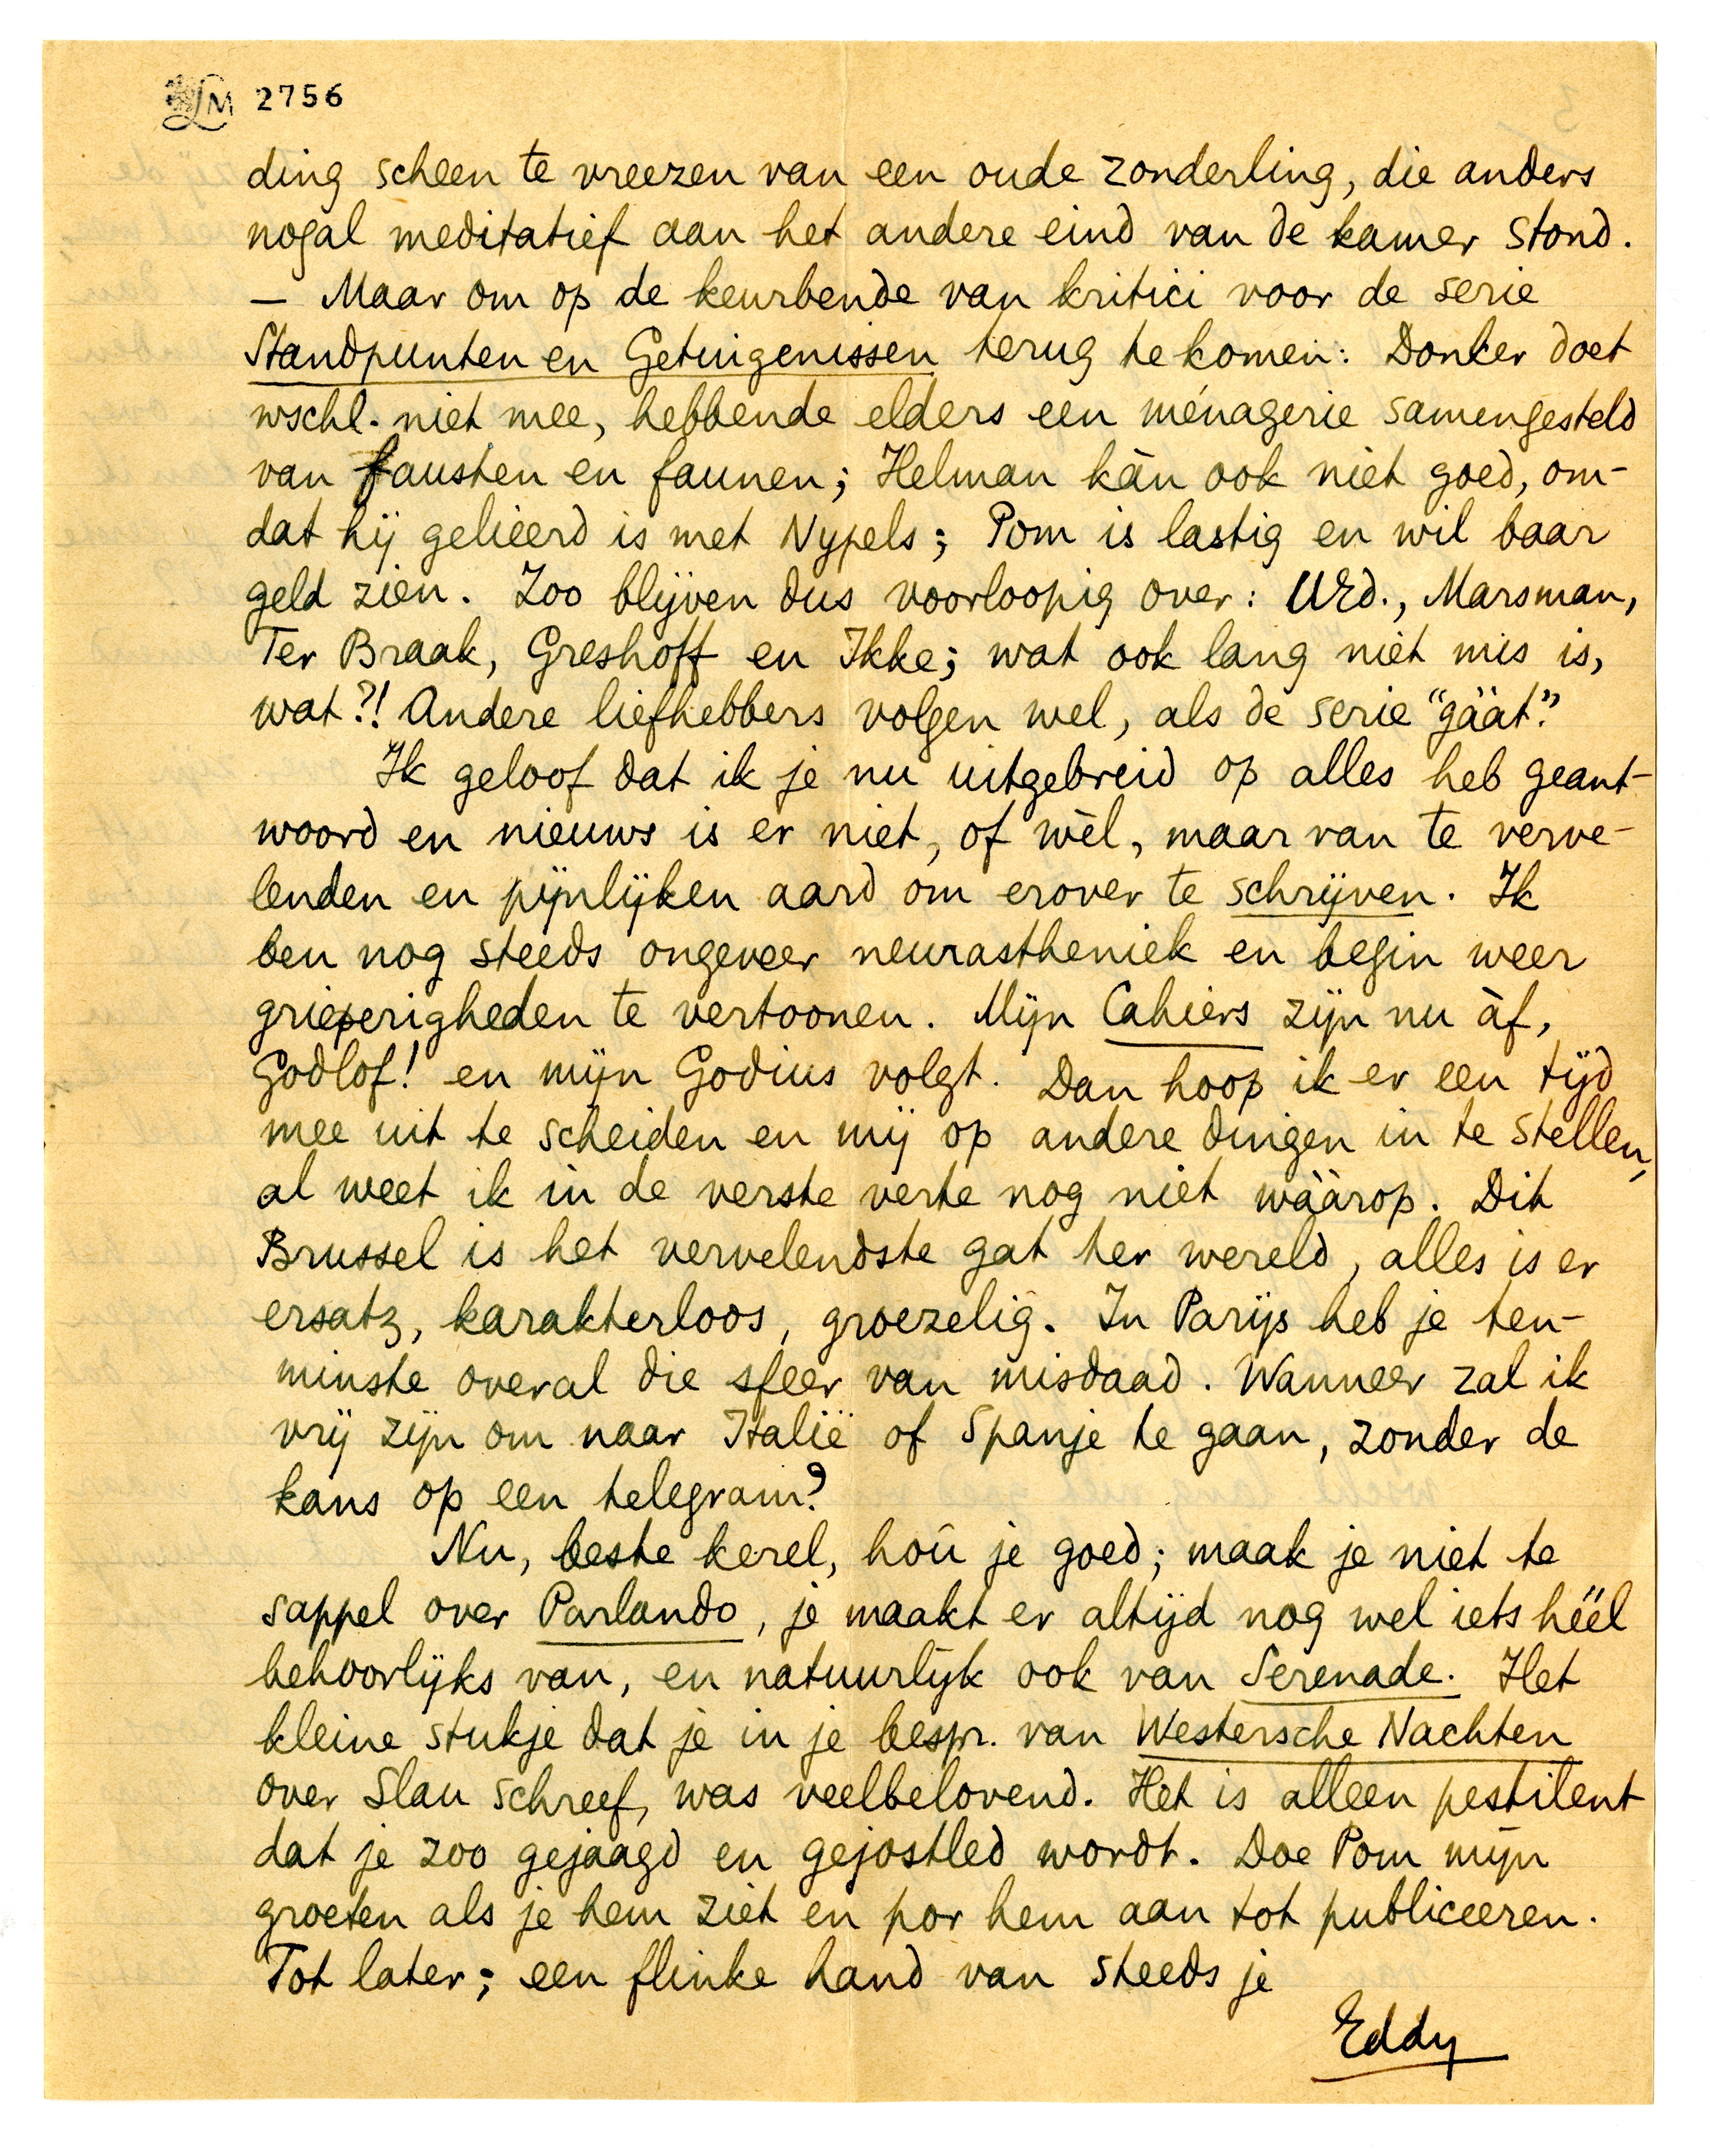 LM 2756
ding scheen te vreezen van een oude zonderling, die anders
nogal meditatief aan het andere eind van de kamer stond.
– Maar om op de keurbende van kritici voor de serie
Standpunten en Getuigenissen terug te komen: Donker doet
wschl. niet mee, hebbende elders een ménagerie samengesteld
van fausten en faunen; Helman kàn ook niet goed, om-
dat hij gelieerd is met Nypels; Pom is lastig en wil baar
geld zien. Zoo blijven dus voorloopig over: UEd., Marsman,
Ter Braak, Greshoff en Ikke; wat ook lang niet mis is,
wat?! Andere liefhebbers volgen wel, als de serie “gààt”.
Ik geloof dat ik je nu uitgebreid op alles heb geant-
woord en nieuws is er niet, of wèl, maar van te verve-
lenden en pijnlijken aard om erover te schrijven. Ik
ben nog steeds ongeveer neurastheniek en begin weer
grieperigheden te vertoonen. Mijn Cahiers zijn nu àf,
Godlof! en mijn Godius volgt. Dan hoop ik er een tijd
mee uit te scheiden en mij op andere dingen in te stellen,
al weet ik in de verste verte nog niet wààrop. Dit
Brussel is het vervelendste gat ter wereld, alles is er
ersatz, karakterloos, groezelig. In Parijs heb je ten-
minste overal die sfeer van misdaad. Wanneer zal ik
vrij zijn om naar Italië of Spanje te gaan, zonder de
kans op een telegram?
Nu, beste kerel, hoû je goed; maak je niet te
sappel over Parlando, je maakt er altijd nog wel iets héél
behoorlijks van, en natuurlijk ook van Serenade. Het
kleine stukje dat je in je bespr. van Westersche Nachten
over Slau schreef, was veelbelovend. Het is alleen pestilent
dat je zoo gejaagd en gejostled wordt. Doe Pom mijn
groeten als je hem ziet en por hem aan tot publiceeren.
Tot later; een flinke hand van steeds je
Eddy